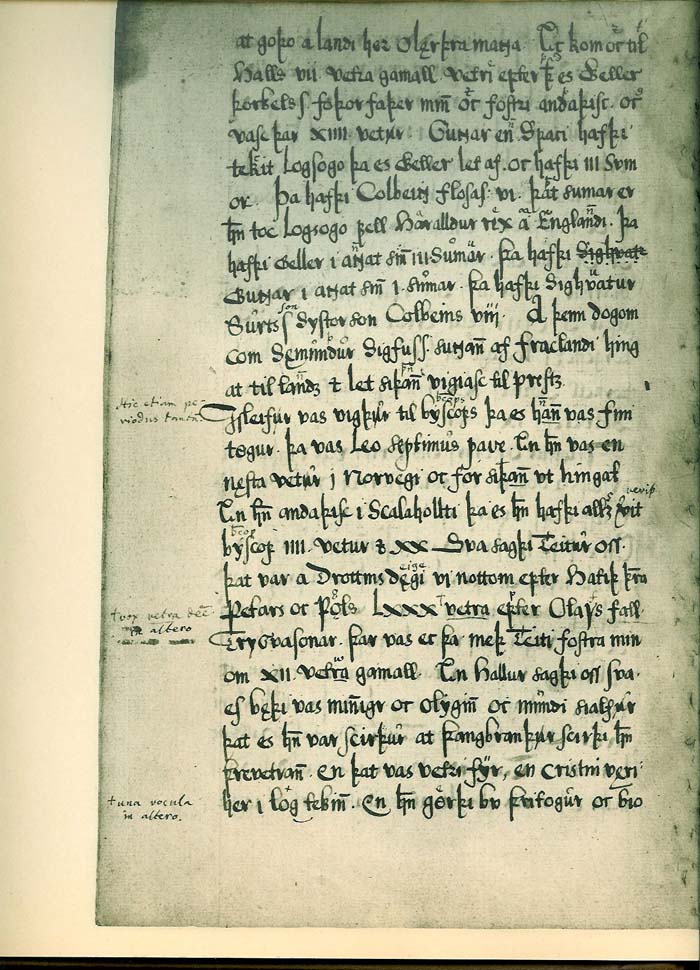 at goþo a landi her Olęrþra manna. Ec kom oc til
Halls vii vetra gamall. vetri epter þ̄ es Geller
þorkels ſ. foþor faþer mīn oc foſtri andaþiſc. oc
vasc þar xiiii vetur. Gunnar en̄ Spaci hafþi
tekit logsogo þa es Geller let af. oc hafþi iii Sum
or. Þa hafþi Colbeinn floſaſ. vi. þat sumar er
hn̄ toc Logsogo fell Haralldur rex a Englandi. þa
hafþi Geller i annat sin̄ iii Sumar. þa hafþi Sighvatr
Gunnar i annat sin̄ i. sumar. þa hafþi Sighvatur
Surts ſ dyſtor son Colbeins viii. A þem dogom
com Sęmundur Sigfuſſ. sunnan̄ af fraclandi hing
at til landz & let siþan̄ vigiaſc til preſtz.
Hic etiam pe-
riodus tantū.
Iſleifur vas vigþur til byſcops þa es han̄ vas fim
tøgur. þa vas Leo Septimus pave. En hn̄ vas en
nęſta vetur i Norvegi oc for siþan̄ ut hingat
En hn̄ andaþiſc i Scalahollti þa es hn̄ hafþi allz verit
byſcop iiii. vetur & xx Sva sagþi Teitur oſſ.
þat var a Drottins dęgi vi nottom epter Hatiþ þra
† vox vetra deē.
in altero
Petars oc Pols Lxxx † vetra epter Olafs fall
Tryggvaſonar. þar vas ec þa meþ Teiti foſtra min
om xii vetra gamall. En Hallur sagþi oſſ sva.
eſ bęþi vas min̄igr oc olygin̄ oc mundi sialfur
þat es hn̄ var ſcirþur at þangbrandur ſcirþi hn̄
þrevetran̄. en þat vas vetri fyr, en criſtni veri
† una vocula
in altero.
her i løg tekin̄. en hn̄ gørþi bu þritogur oc bio